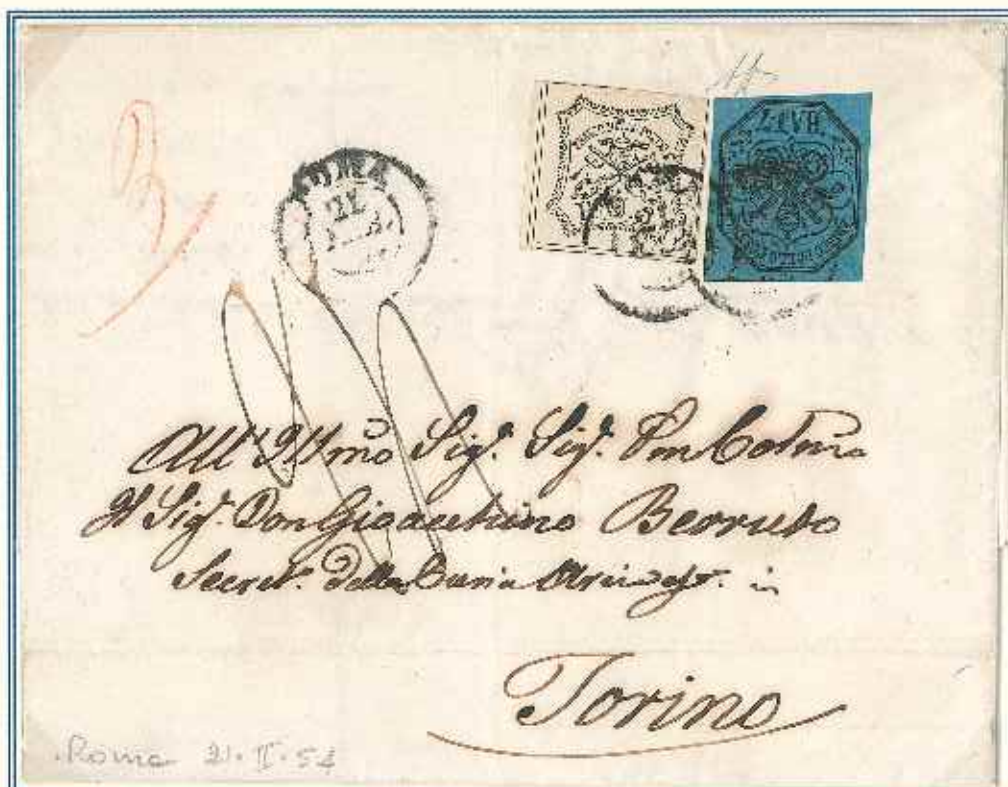 7 BAJ.
ROMA
21
All' Illmo Sig.r Sig.r Pron Colmo
Il Sig.r Don Gioacchino Berruto
Secret.o della Curia Arcivesc. in
Torino
Roma 21.II.54